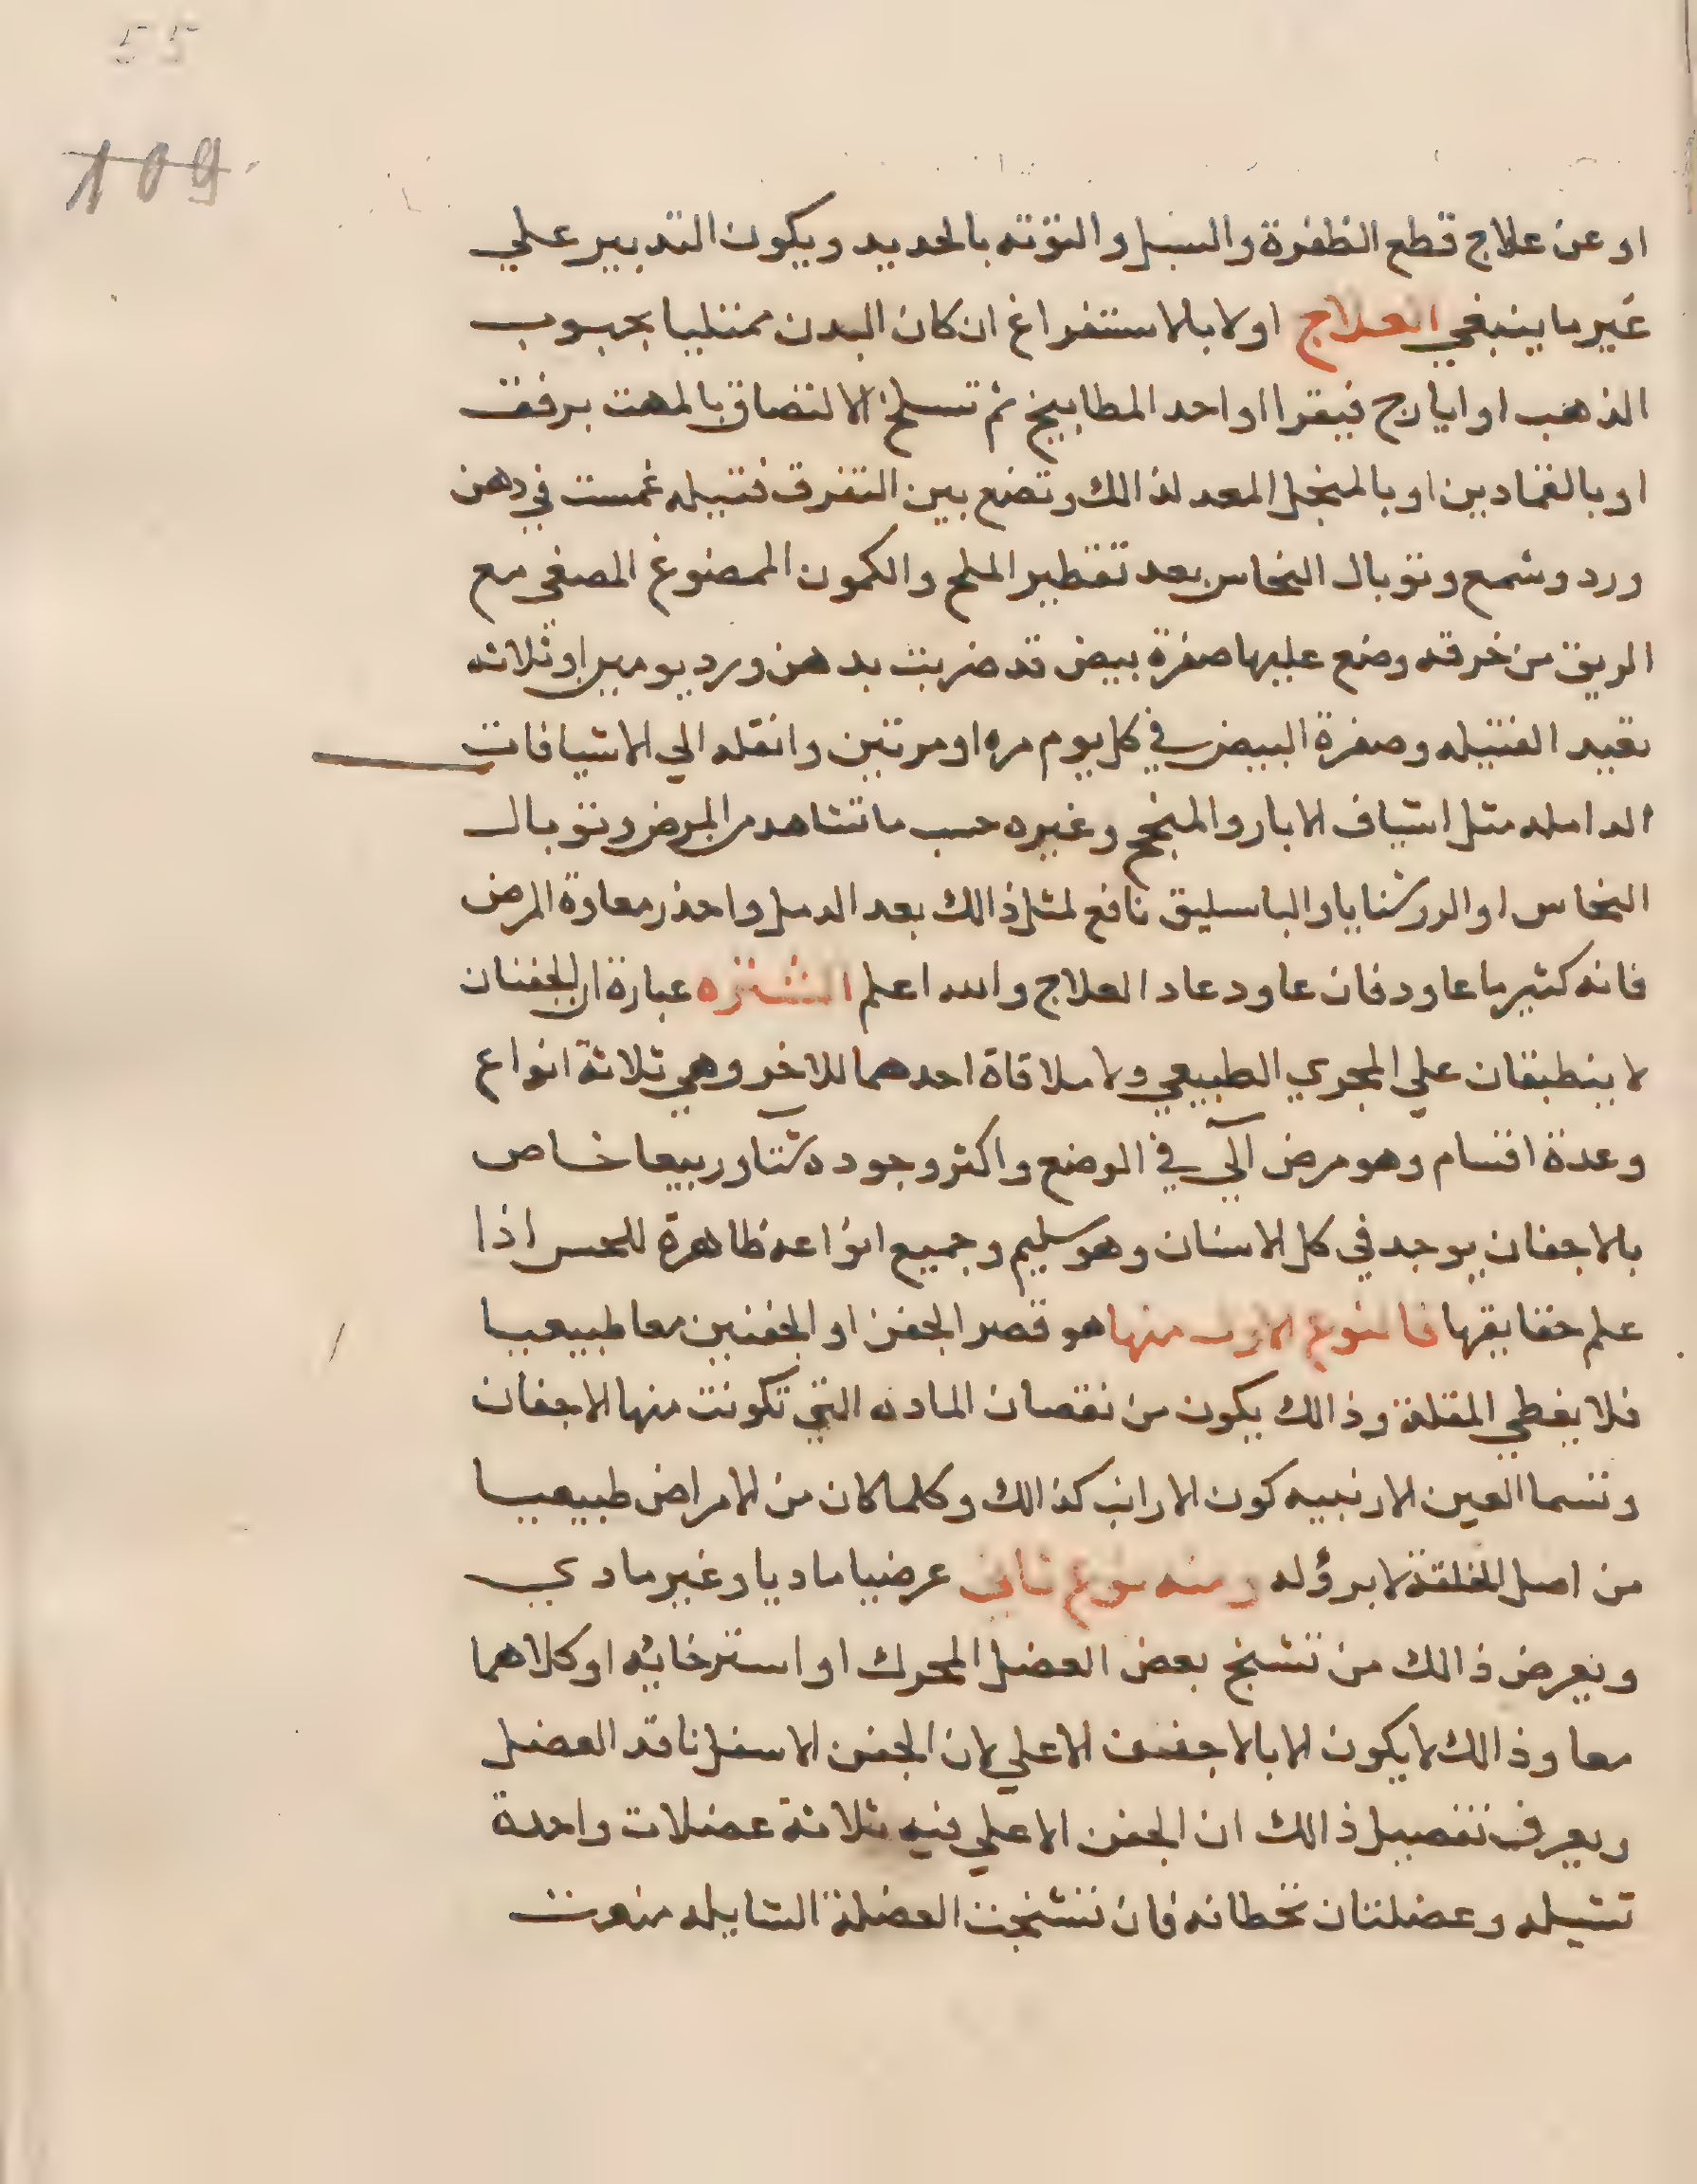 55
109
او عن علاج قطع الظفرة والسبل والتوته بالحديد ويكون التدبير علي
غير ما ينبغي العلاج اولا بالاستفراغ ان كان البدن ممتليا بحبوب
الذهب او ايارج فيقرا او احد المطابيخ ثم تسلخ الالتصاق بالمهت برفق
او بالقمادين او بالمنجل المعد لذالك وتضع بين التفرق فتيله غمست في دهن
ورد وشمع وتوبال النحاس بعد تقطير الملح والكمون الممضوغ المصفي مع
الريق من خرقه وضع عليها صفرة بيض قد ضربت بدهن ورد يومين او ثلاثه
تعيد الفتيله وصفرة البيض في كل يوم مره او مرتين وانقله الي الاشيافات
الدامله مثل اشياف الابار والمنجح وغيره حسب ما تشاهد من المرض وتوبال
النحاس او الروشنايا والباسليق نافع لمثل ذالك بعد الدمل واحذر معاودة المرض
فانه كثير ما عاود فان عاود عاد العلاج والله اعلم الشتره عبارة ان الجفنان
لا ينطبقان علي المجري الطبيعي ولا ملاقاة احدهما للاخر وهي ثلاثة انواع
وعدة اقسام وهو مرض آلي في الوضع واكثر وجوده شتآ وربيعا خاص
بالاجفان يوجد في كل الاسنان وهو سليم وجميع انواعه ظاهرة للحس اذا
علم حقايقها فالنوع الاول منها هو قصر الجفن او الجفنين معا طبيعيا
فلا يغطي المقلة وذالك يكون من نقصان الماده التي تكونت منها الاجفان
وتسما العين الارنبيه كون الارانب كذالك وكلما كان من الامراض طبيعيا
من اصل الخلقة لا برؤ له ومنه نوع ثاني عرضيا ماديا وغير مادي
ويعرض ذالك من تشنج بعض العضل المحرك او استرخايه او كلاهما
معا وذالك لا يكون الا بالاجفن الاعلي لان الجفن الاسفل فاقد العضل
ويعرف تفصيل ذالك ان الجفن الاعلي فيه ثلاثة عضلات واحدة
تشيله وعضلتان تحطانه فان تشنجت العضلة الشايله منعت